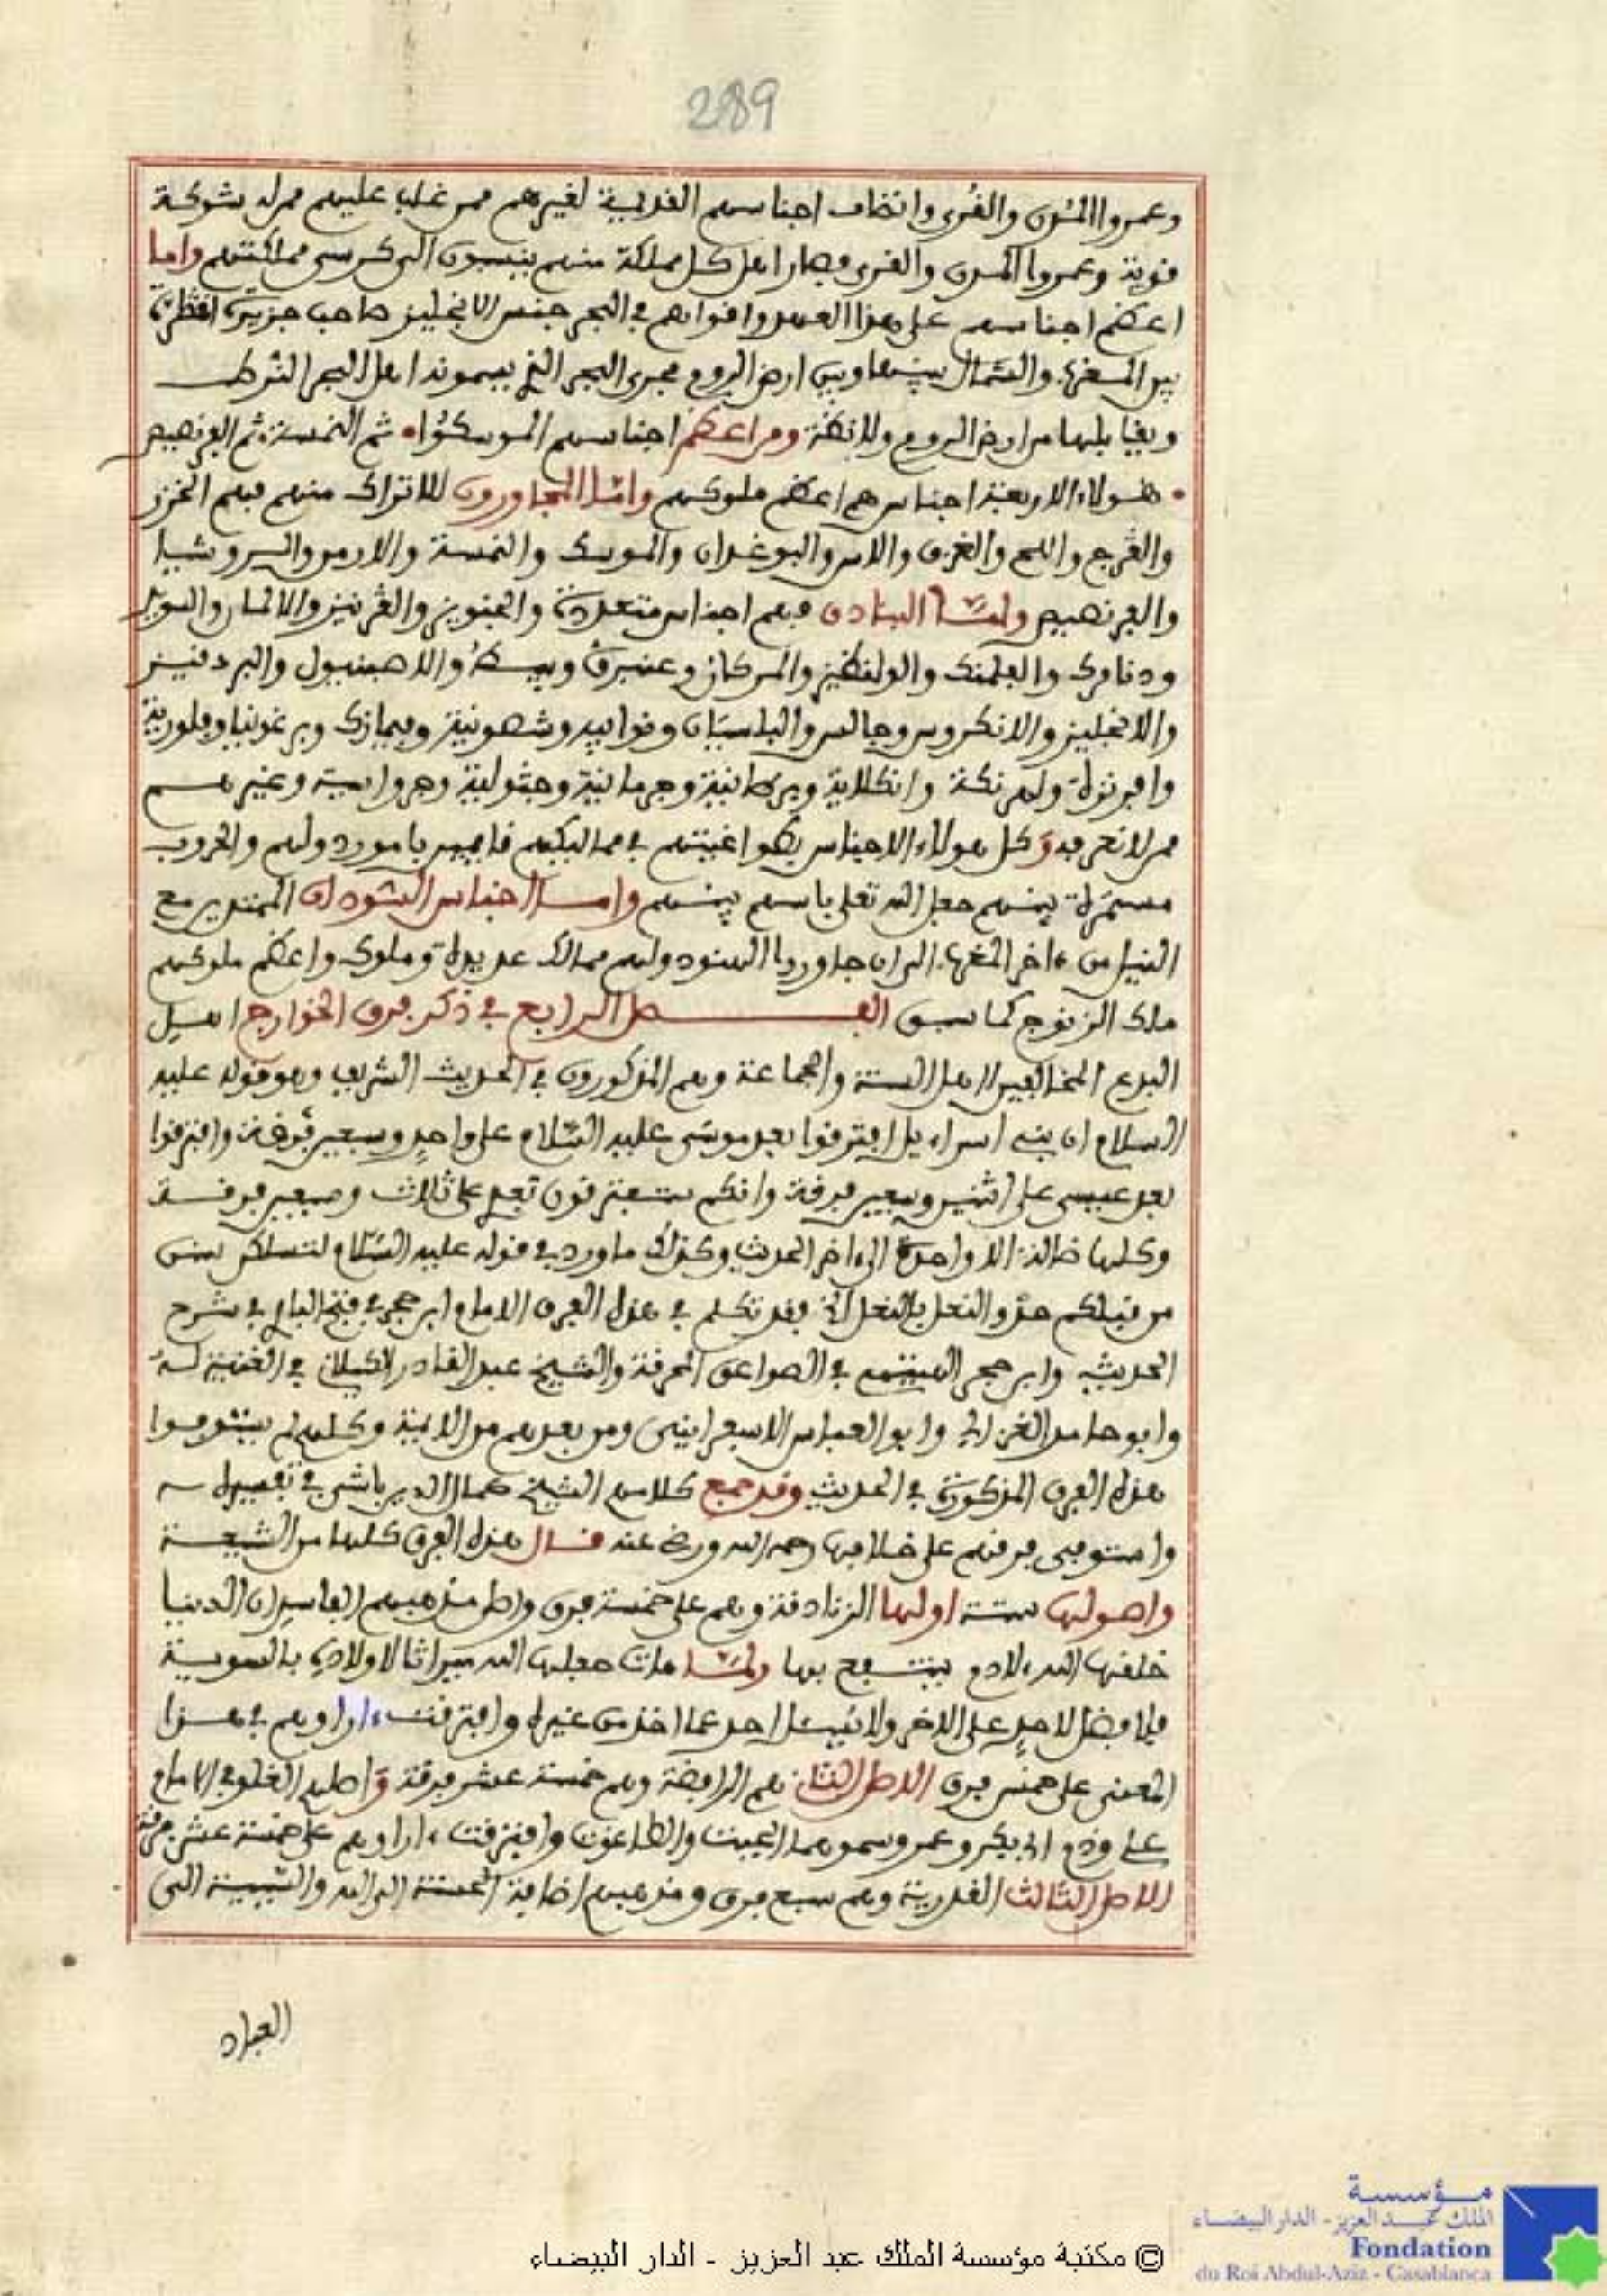 289
وعمروا المدن والقرى وانضاف اجناسهم القديمة لغيرهم ممن غلب عليهم ممن له شوكة
قوية وعمروا المدن والقرى فصار اهل كل مملكة منهم ينسبون الى كرسي مملكتهم واما
اعظم اجناسهم على هذا العهد واقواهم في البحر جنس الانجليز صاحب جزيرة
بين المغرب والشمال بينها وبين ارض الروم مجرى البحر الذي يسمونه اهل البحر
وبقيا يليها من ارض الروم ومن اعظم اجناسهم الموسكوا ثم النمسة ثم الفرنصيص
هـولاء الاربعة اجناس هم اعظم ملوكهم وامـا المجاورون للاتراك منهم فهم الخزر
والڤرج واللج والغزف والاس والبوغدان والموسك والنمسة والارمن والسروشيا
والفرنصيص وامـا البنادق فهم اجناس متعددة والجنويز والڤرنيز والالمان والسويد
ودنامرك والفلمنك والولنطيز والمركان وعنبرڤ والاصبنيول والبردقيز
والانجليز والانكروس وجالس
وانكلاية وبريطانية وجرمانية وغيرهــم
ممن لا نعرفه وكل هولاء الاجناس طواغيتهم في ممالكهم قايمين بامور دولهم والحروب
مستمرة بينهم جعل الله تعلى باسهم بينهم وامــا اجناس السودان الممتدين مع
النيل من ءاخر المغرب الى ان جاوروا الهنود ولهم ممالك عديدة وملوك واعظم ملوكهم
ملك الزنوج كما سبق الفــصل الرابع في ذكر فرق الخوارج اهــل
البدع المخالفين لاهل السنة والجماعة وهم المذكورون في الحديث الشريف وهو قوله عليه
السلام ان بني اسراءيل افترقوا بعد موسى عليه السلام على واحد وسبعين فرقة وافترقوا
بعد عيسى على اثنين وسبعين فرقة وانكم ستفترقون بعدي على ثلاث وسبعين فرقــة
وكلها ضالة الا واحدة الى ءاخر الحديث وكذلك ما ورد في قوله عليه السلام لتسلكن سنن
من قبلكم حذو النعل بالنعل الخ وقد تكلم في هذه الفرق الامام ابن حجر في فتح الباري في شرح
الحديث وابن حجر الهيتمي في الصواعق المحرقة والشيخ عبد القادر الكيلاني في الغنية له
وابو حامد الغزالي وابو العباس الاسفراييني ومن بعدهم من الايمة وكلهم لم يستوفوا
هذه الفرق المذكورة في الحديث وقد جمع كلامهم الشيخ كمال الدين باشى في تفسيره
واستوفى فرقهم على خلافها رحمه الله ورضي عنه قــال هذه الفرق كلها من الشيعــة
واصولها ستة اولها الزنادقة وهم على خمسة فرق واصل مذهبهم الفاسد ان الدنيا
خلقها الله لادم ينتفع بها ولمـا مات جعلها الله ميراثا لاولاده بالسويــة
فلا فضل لاحد على الاخر ولا يسئل احد عما اخذ من غيره وافترقت ءاراوهم في هــذا
المعنى على خمس فرق الاصل الثاني هم الرافضة وهم خمسة عشر فرقة واصلهم الغلو في الامام
علي وذم ابي بكر وعمر وسموهما الجبت والطاغوت وافترقت ءاراوهم على خمسة عشر فرقة
الاصل الثالث القدرية وهم سبع فرق ومذهبهم اضافة الحسنة الى الله والسيئة الى
العباد
© مكتبة مؤسسة الملك عبد العزيز - الدار البيضاء
مؤسسة
الملك عبد العزيز - الدار البيضاء
Fondation
du Roi Abdul-Aziz - Casablanca